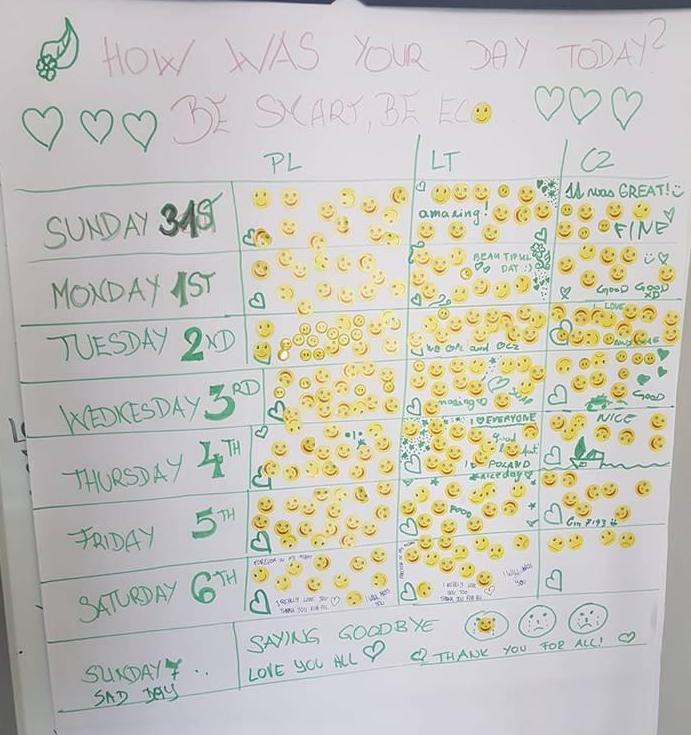 HOW WAS YOUR DAY TODAY?
BE SMART, BE ECO
PL LT CZ
SUNDAY 31ST
amazing!
It was GREAT!
FINE
MONDAY 1ST
BEAUTIFUL
DAY :)
GOOD GOOD
XD
TUESDAY 2ND
WE PL and CZ
I LOVE
WEDKESDAY 3RD
GOOD
THURSDAY 4TH
I EVERYONE
good
POLAND
nice day
NICE
FRIDAY 5TH
FOOD
SATURDAY 6TH
FOREVER IN MY HEART
I REALLY LOVE YOU
THANK YOU FOR ALL
I WILL MISS
YOU
I REALLY LOVE
YOU TOO
THANK YOU FOR ALL
I WILL MISS
YOU
SUNDAY 7..
SAD DAY
SAYING GOODBYE
LOVE YOU ALL
THANK YOU FOR ALL!